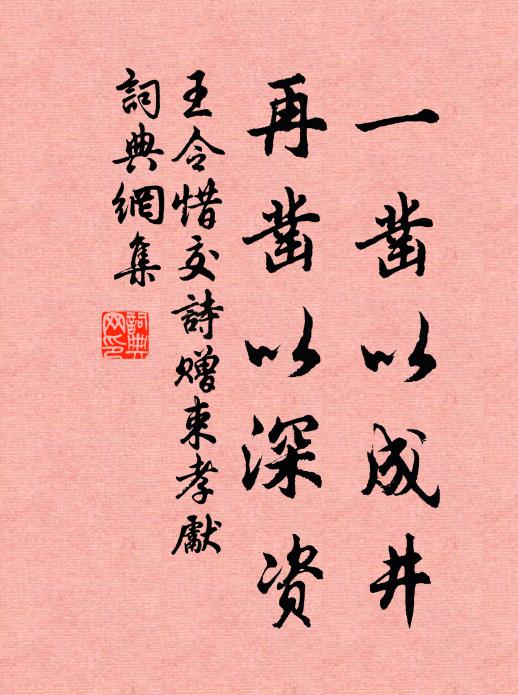 一鑿以成井
再鑿以深資
王令惜交詩贈束孝獻
詞典網集
詞典網印